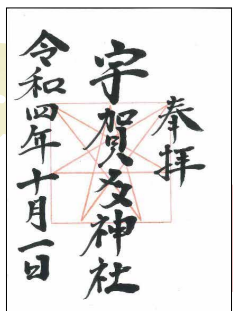 奉拝
宇賀多神社
令和四年十月一日